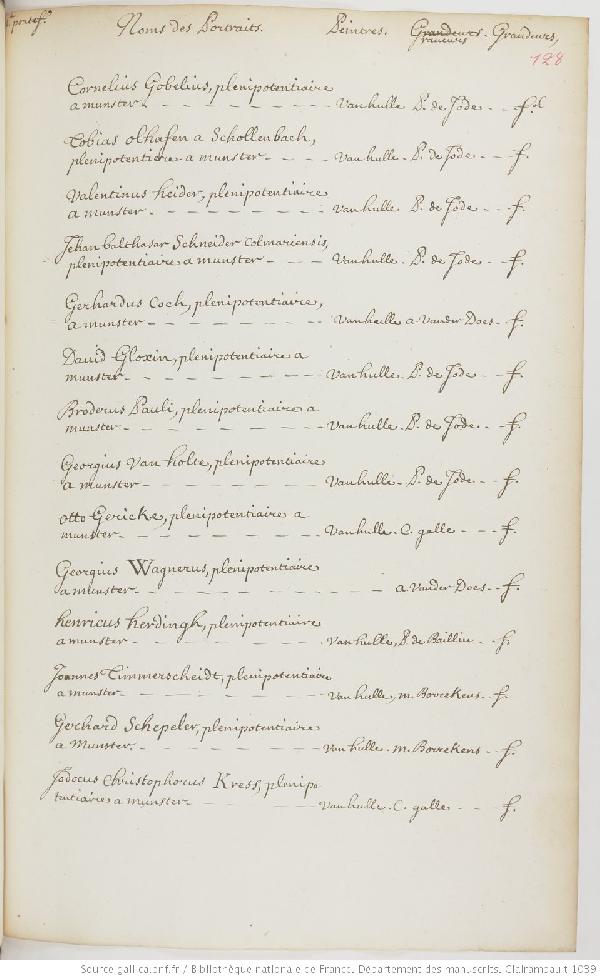 portef.
Noms des Portraits. Peintres. Graveurs. Grandeurs,
128
Cornelius Gobelius, plenipotentiaire
a munster. Vanhulle P. de Jode f.
Tobias olhafen a Schollenbach,
plenipotentiere a munster Vanhulle. P. de Jode f.
Valentinus heider, plenipotentiaire
a munster. Vanhulle P. de Jode f.
Jehan balthasar Schneider Colmariensis,
plenipotentiaire a munster Vanhulle. P. de Jode f.
Gerhardus Coch, plenipotentiaire,
a munster Vanhulle a Vander Does f.
David Gloxin, plenipotentiaire a
munster Vanhulle. P. de Jode f.
Broderus Pauli, plenipotentiaire a
munster Vanhulle. P. de Jode f.
Georgius Van holte, plenipotentiaire
a munster Vanhulle. P. de Jode f.
otto Gericke, plenipotentiaire a
munster Vanhulle. C. galle f.
Georgius Wagnerus, plenipotentiaire
a munster. a Vander Does f.
henricus herdingh, plenipotentiaire
a munster Vanhulle, P. de Baillieu f.
Joannes Timmerscheidt, plenipotentiaire
a munster Vanhulle, m. Borrekens f.
Gerhard Schepeler, plenipotentiaire
a Munster. Vanhulle. m. Borrekens f.
Jodocus Christophorus Kress, plenipo
tentiaire a munster Vanhulle. C. galle f.
Source gallica.bnf.fr / Bibliothèque nationale de France. Département des manuscrits. Clairambault 1039